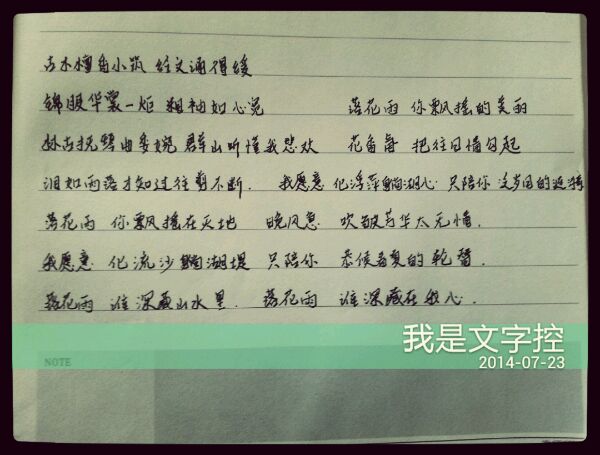 古木檀香小筑 经文诵得缓
锦服华裳一炬 粗袖如心宽 落花雨 你飘摇的美丽
抚琴曲多婉 群山听懂我悲欢 花香 把往日情勾起
泪如雨落才知过往剪不断. 我愿意 化浮萍躺湖心 只陪你 泛岁月的涟漪
落花雨 你飘摇在天地 晚风急 吹皱芳华太无情.
我愿意 化流沙躺湖堤 只陪你 恭候春夏的轮替.
落花雨 谁深藏山水里. 落花雨 谁深藏在我心.
NOTE
我是文字控
2014-07-23